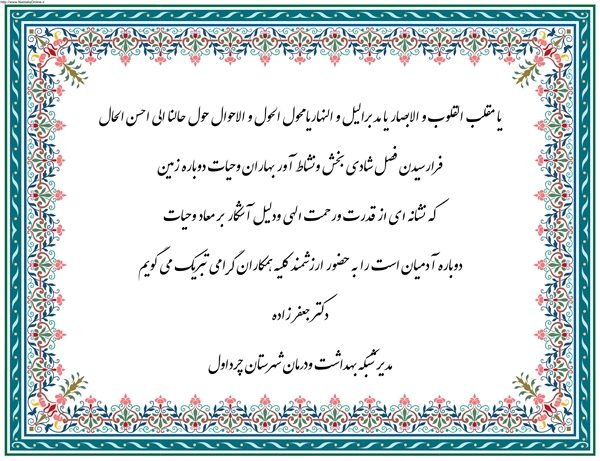 http://www.NastaliqOnline.ir
یا مقلب القلوب و الابصار یا مدبر الیل و النهار یا محول الحول و الاحوال حول حالنا الی احسن الحال
فرا رسیدن فصل شادی بخش و نشاط آور بهاران و حیات دوباره زمین
که نشانه ای از قدرت و رحمت الهی و دلیل آشکار بر معاد و حیات
دوباره آدمیان است را به حضور ارزشمند کلیه همکاران گرامی تبریک می گویم
دکتر جعفرزاده
مدیر شبکه بهداشت و درمان شهرستان چرداول